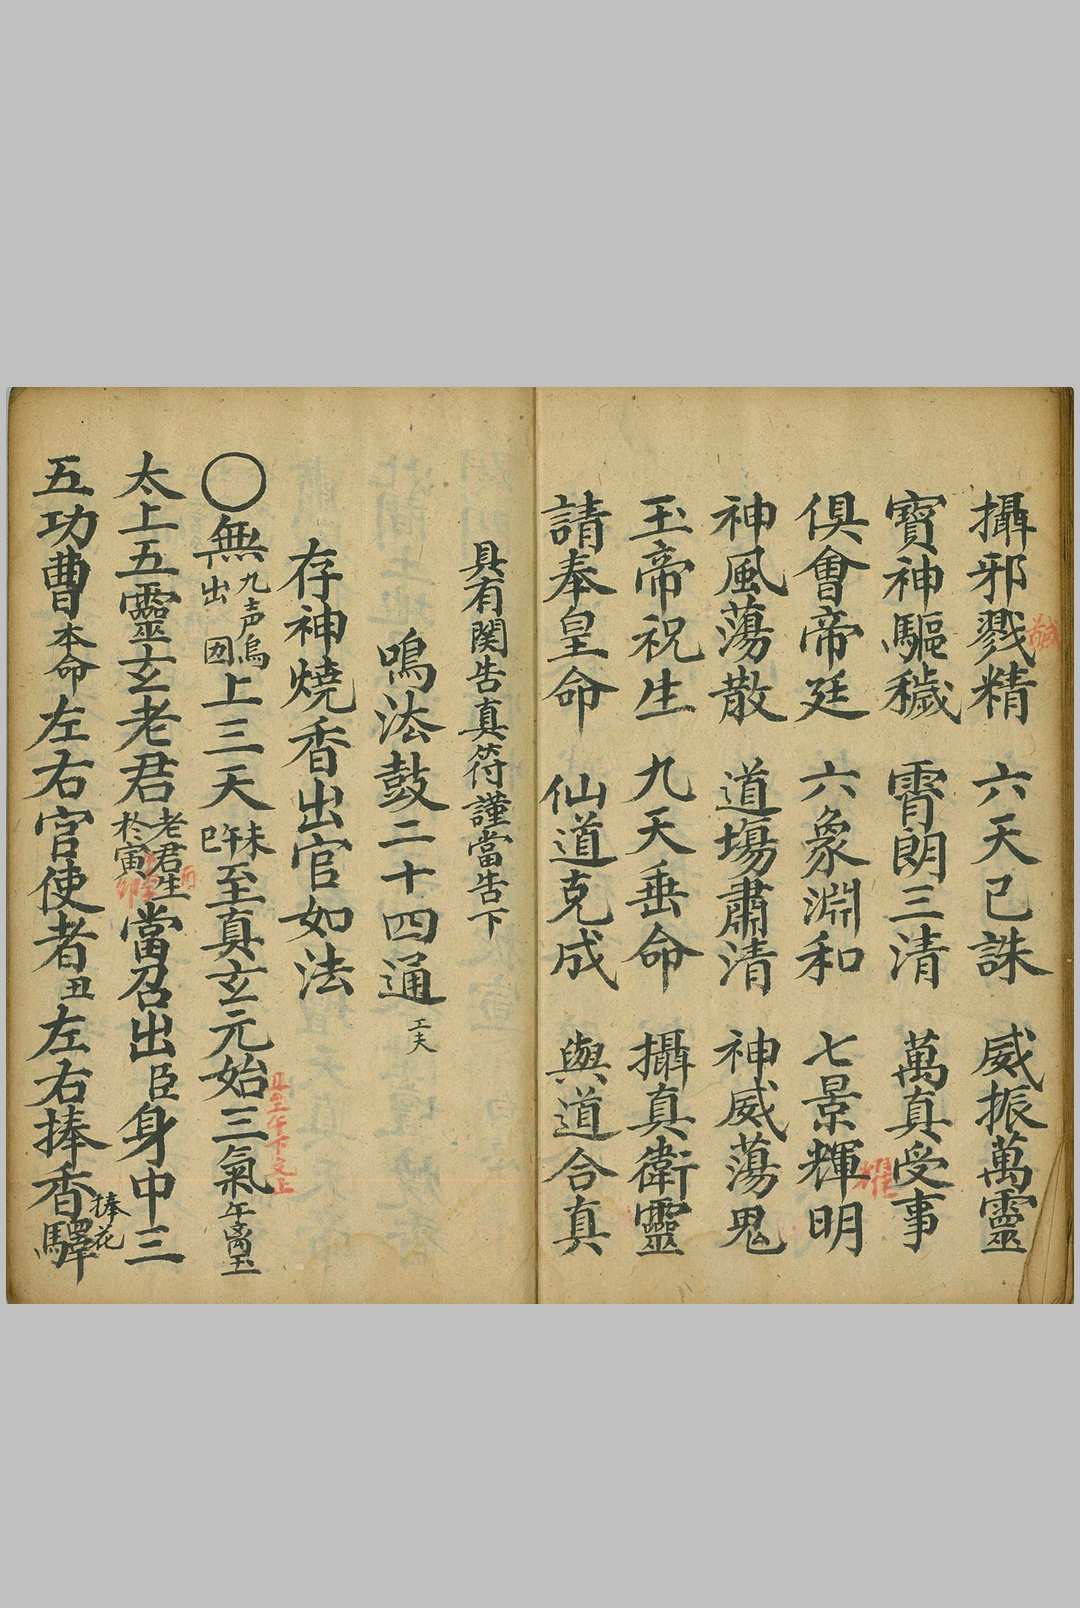 攝邪戮精 六天已誅 威振萬靈
寶神驅穢 霄朗三清 萬真受事
俱會帝廷 六象淵和 七景輝明
耀
神風蕩散 道塲肅清 神威蕩鬼
玉帝祝生 九天垂命 攝真衛靈
請奉皇命 仙道克成 與道合真
具有関告真符謹當告下
鳴法鼓二十四通 工夫
存神燒香出官如法
〇無 九声鳥 出囡 上三天 未午巳 至真玄元始三氣
太上五靈玄老君 老君生於寅 當召出臣身中三
五功曹 本命 左右官使者 丑 左右捧香驛
捧花